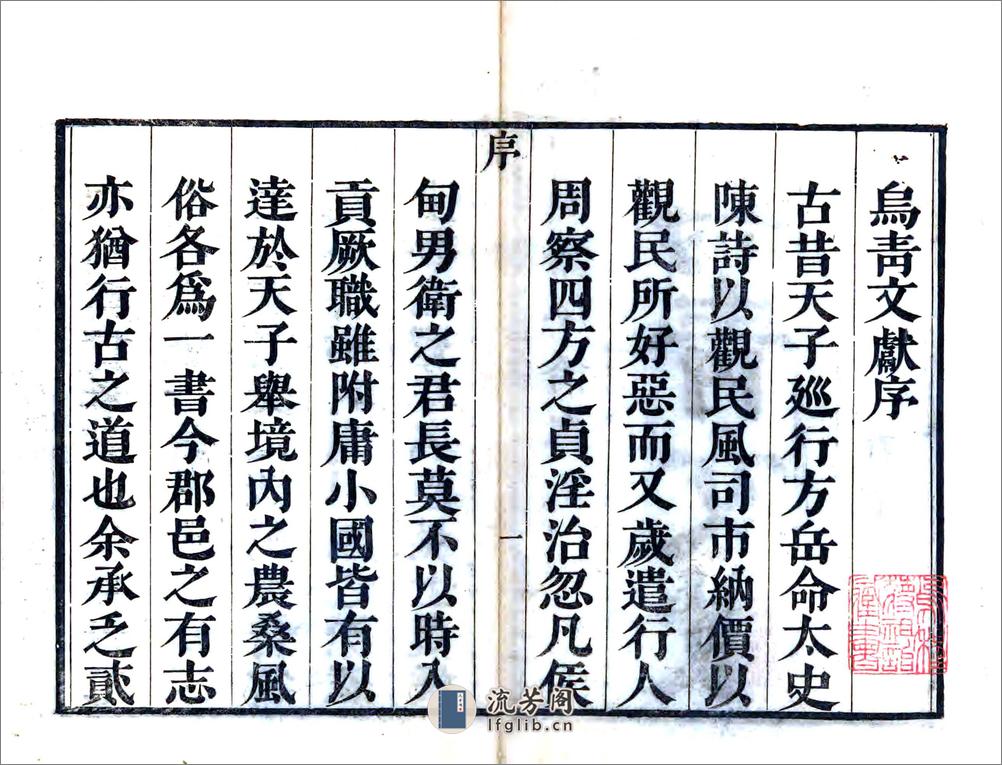 烏青文獻序
古昔天子廵行方岳命太史
陳詩以觀民風司市納價以
觀民所好惡而又歲遣行人
周察四方之貞淫治忽凡侯
序
一
甸男衛之君長莫不以時入
貢厥職雖附庸小國皆有以
逹於天子舉境內之農桑風
俗各爲一書今郡邑之有志
亦猶行古之道也余承乏貳
流芳阁
lfglib.cn